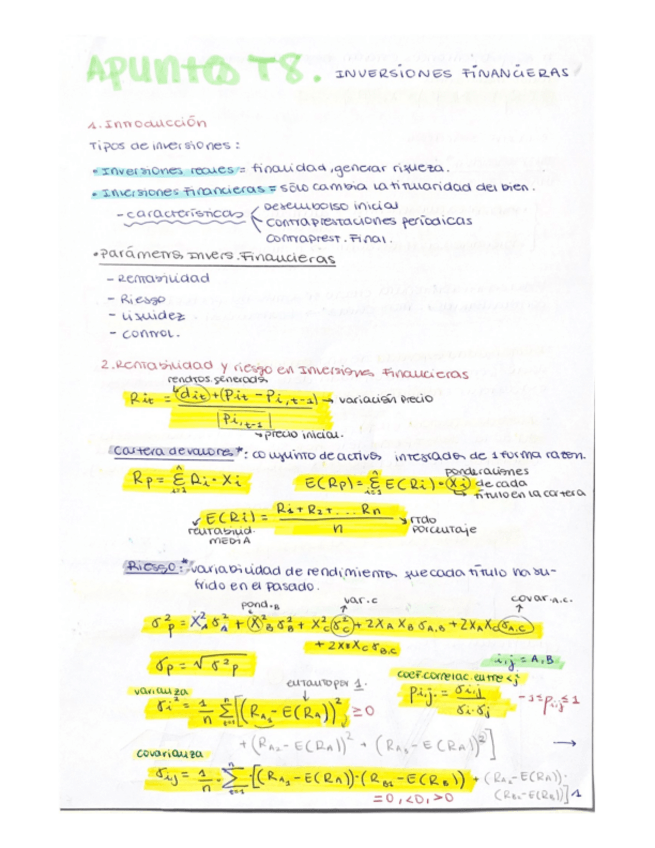 Apuntes T8. INVERSIONES FINANCIERAS
1. Introducción
Tipos de inversiones:
• Inversiones reales = finalidad, generar riqueza.
• Inversiones Financieras = sólo cambia la titularidad del bien.
- características < Desembolso inicial
contraprestaciones periodicas
contraprest. Final.
• Parámetros Invers. Financieras
- Rentabilidad
- Riesgo
- Liquidez
- control.
2. Rentabilidad y riesgo en Inversiones Financieras
rendtos. generados
Rit = dit + (Pit - Pi,t-1) → variación precio
Pi,t-1
→ precio inicial.
Cartera de valores*: conjunto de activos integrados de 1 forma razon.
ponderaciones
Rp = Σ Ri · Xi E(Rp) = Σ E(Ri) · Xi de cada
i=1 n i=1 n título en la cartera
E(Ri) = R1 + R2 + ... Rn
n
rentabilid. MEDIA
rtdo porcentaje
Riesgo:* variabilidad de rendimientos que cada título ha su-
frido en el pasado.
pond. B var. C covar. A.C.
σ²p = X²A σ²A + X²B σ²B + X²C σ²C + 2XA XB σA,B + 2XA XC σA,C
+ 2XB XC σB,C
i,j = A, B
σp = √σ²p
coef. correlac. entre i j
varianza en tanto por 1. Pi,j. = σi,j / σi·σj -1 ≤ pi,j ≤ 1
σi² = 1/n Σ [(RA1 - E(RA))² ≥ 0
+ (RA2 - E(RA))² + (RA3 - E(RA))²] →
covarianza
σij = 1/n · Σ · [(RA1 - E(RA)) · (RB1 - E(RB)) + (RA2 - E(RA)) ·
(RB2 - E(RB))]
= 0, < 0, > 0
1